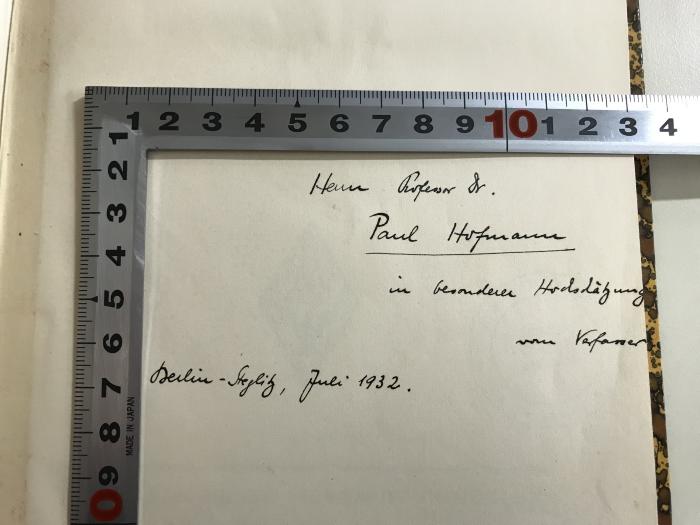 1 2 3 4 5 6 7 8 9 10 1 2 3 4
2
3
4
5
6
7
8
9
0
MADE IN JAPAN
Herrn Professor Dr.
Paul Hofmann
in besonderer Hochschätzung
vom Verfasser
Berlin-Steglitz, Juli 1932.